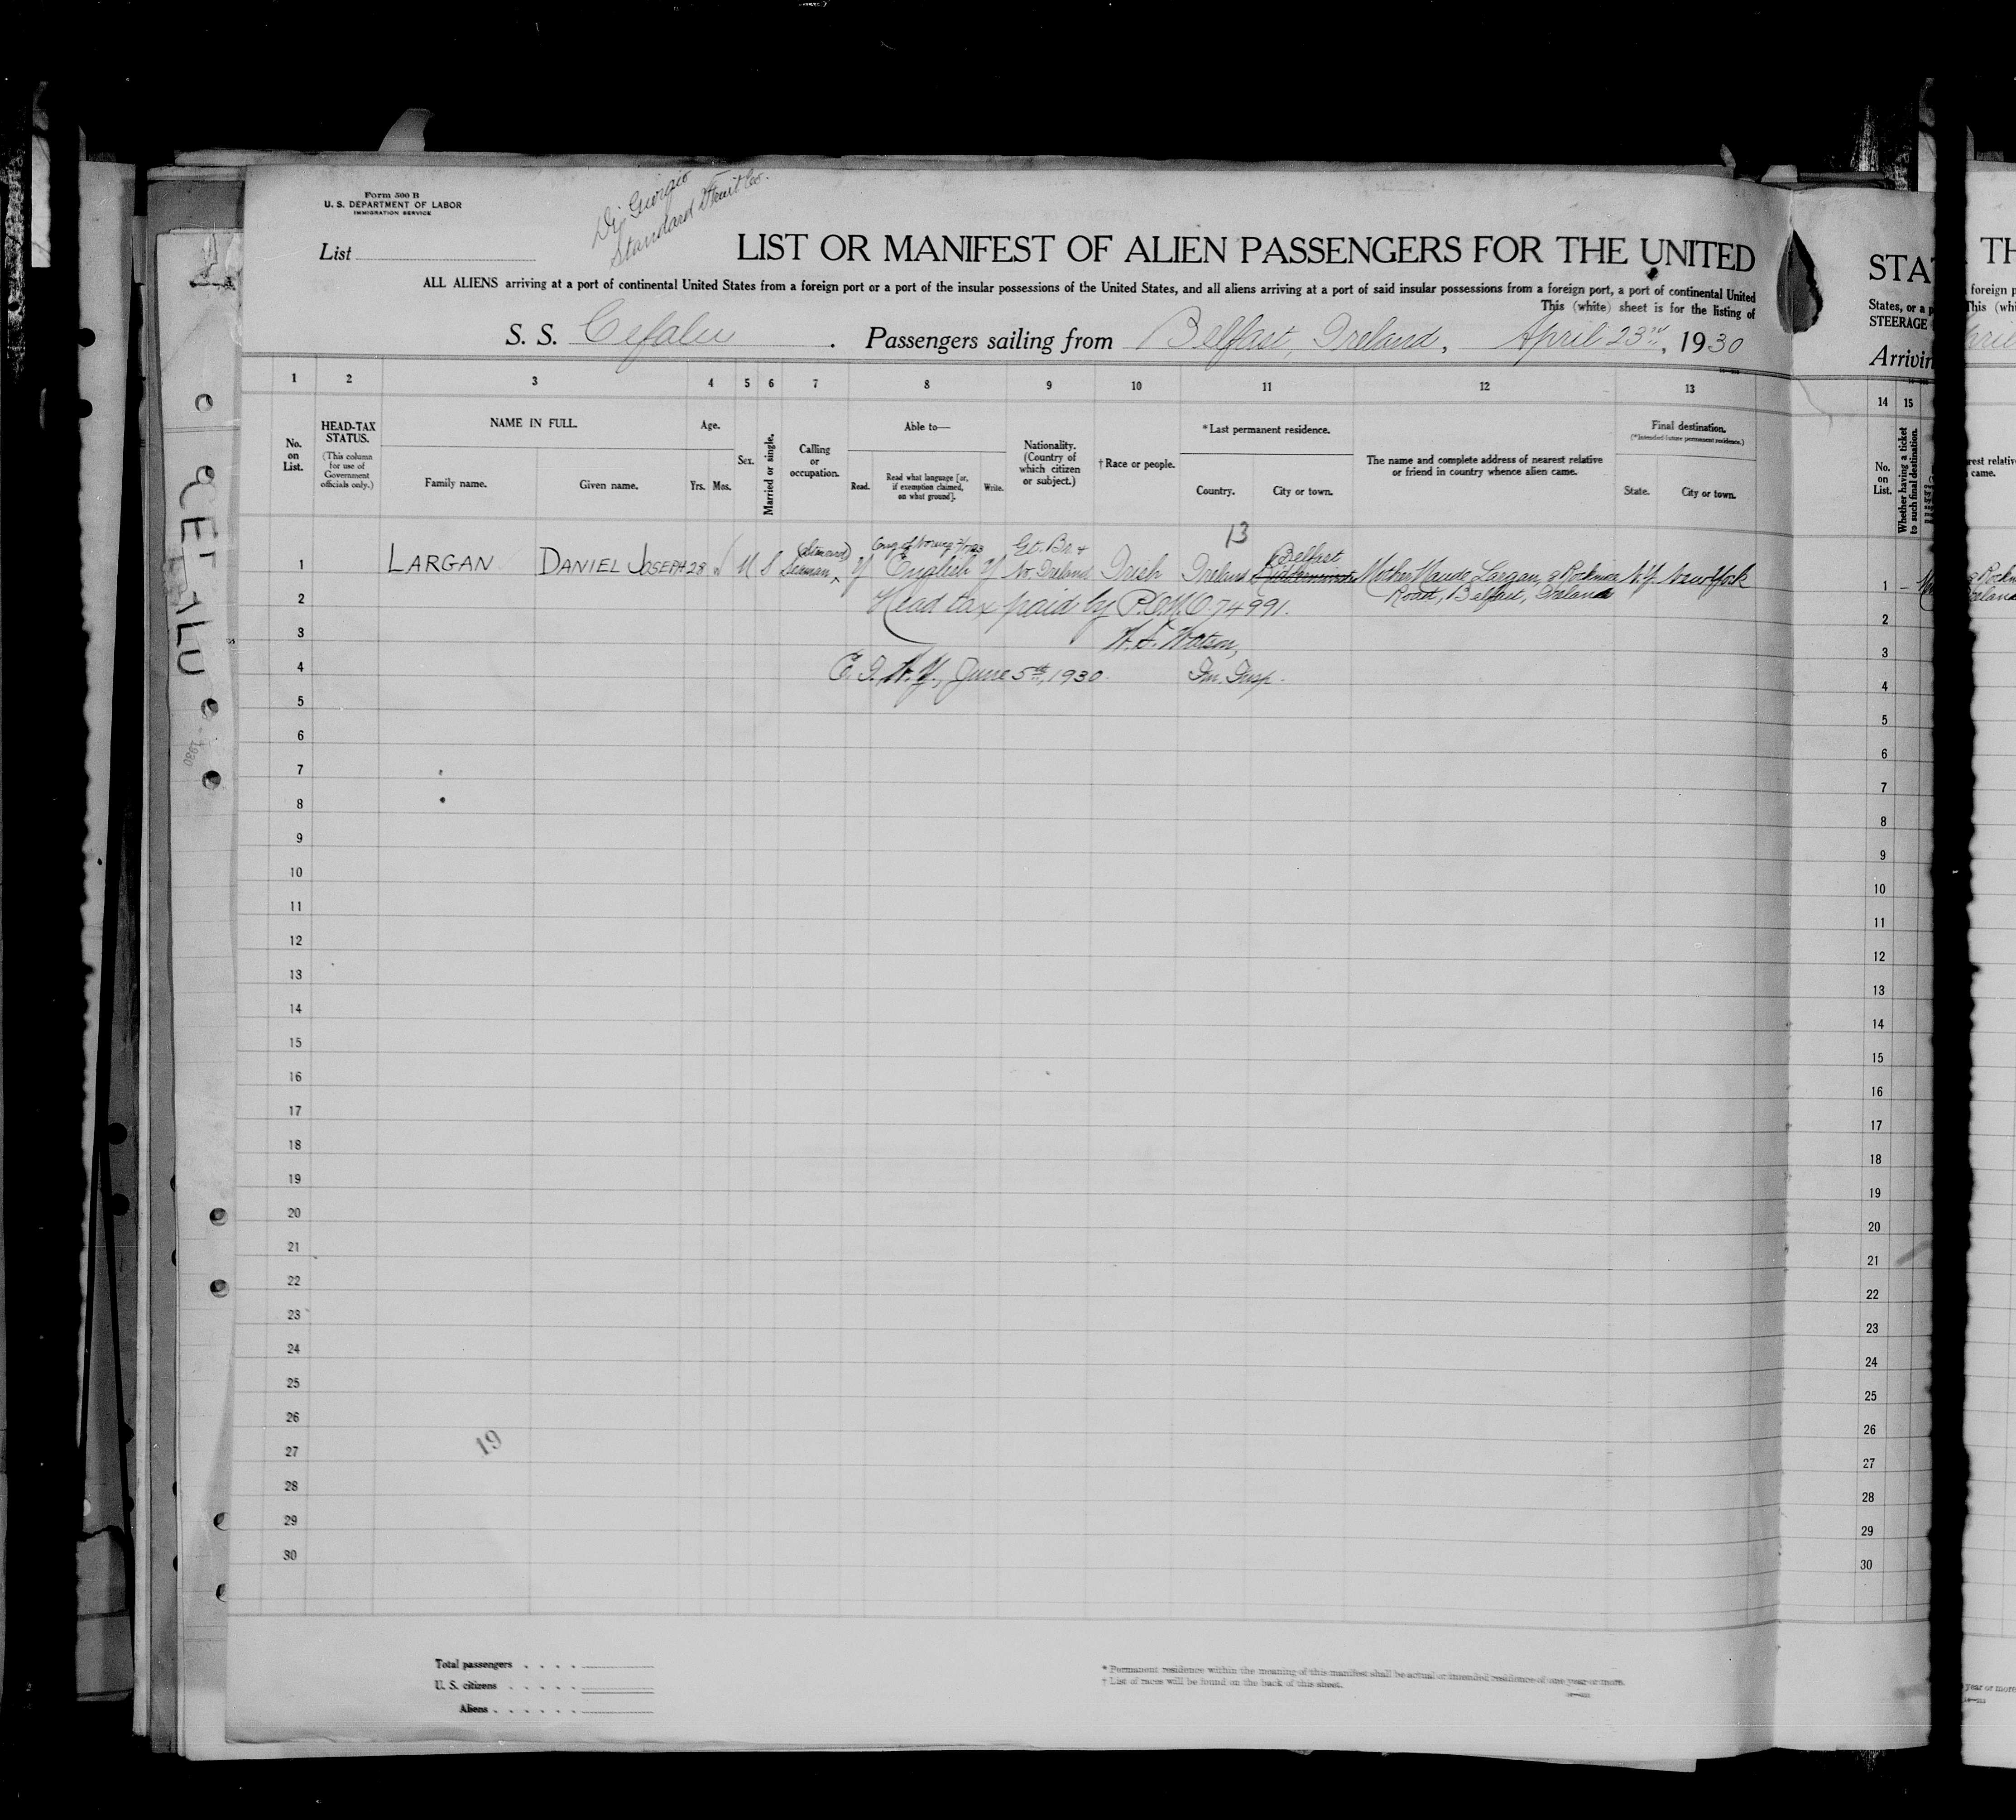 Form 500 B
U. S. DEPARTMENT OF LABOR
IMMIGRATION SERVICE
Di Giorgio
Standard Fruit Co.
List
LIST OR MANIFEST OF ALIEN PASSENGERS FOR THE UNITED
ALL ALIENS arriving at a port of continental United States from a foreign port or a port of the insular possessions of the United States, and all aliens arriving at a port of said insular possessions from a foreign port, a port of continental United
This (white) sheet is for the listing of
S. S. Cefalu . Passengers sailing from Belfast, Ireland, April 23rd, 1930
1 2 3 4 5 6 7 8 9 10 11 12 13
No. on List.
HEAD-TAX STATUS.
(This column for use of Government officials only.)
NAME IN FULL
Family name. Given name.
Age.
Yrs. Mos.
Sex.
Married or single.
Calling or occupation.
Able to—
Read. Read what language [or, if exemption claimed, on what ground]. Write.
Nationality. (Country of which citizen or subject.)
†Race or people.
*Last permanent residence.
Country. City or town.
The name and complete address of nearest relative or friend in country whence alien came.
Final destination.
(*Intended future permanent residence.)
State. City or town.
13
Gt. Br. + Belfast
1 LARGAN DANIEL JOSEPH 28 M S Seaman Y English Y No. Ireland Irish Ireland Mother Maude Largan, Road, Belfast, Ireland N.Y. New York
2 Head tax paid by P.O.M.O. 74991.
3 Watson,
4 E. I. N. Y., June 5th, 1930. Im. Insp.
5
6
7
8
9
10
11
12
13
14
15
16
17
18
19
20
21
22
23
24
25
26
27
28
29
30
19
Total passengers
U. S. citizens
Aliens
* Permanent residence within the meaning of this manifest shall be actual or intended residence of one year or more.
† List of races will be found on the back of this sheet.
CEFALU
1930
STA
States, or a p
STEERAGE
Arrivin
14 15
No. on List.
Whether having a ticket to such final destination.
1
2
3
4
5
6
7
8
9
10
11
12
13
14
15
16
17
18
19
20
21
22
23
24
25
26
27
28
29
30
TH
foreign p
This (whi
rest relativ
came.
year or more